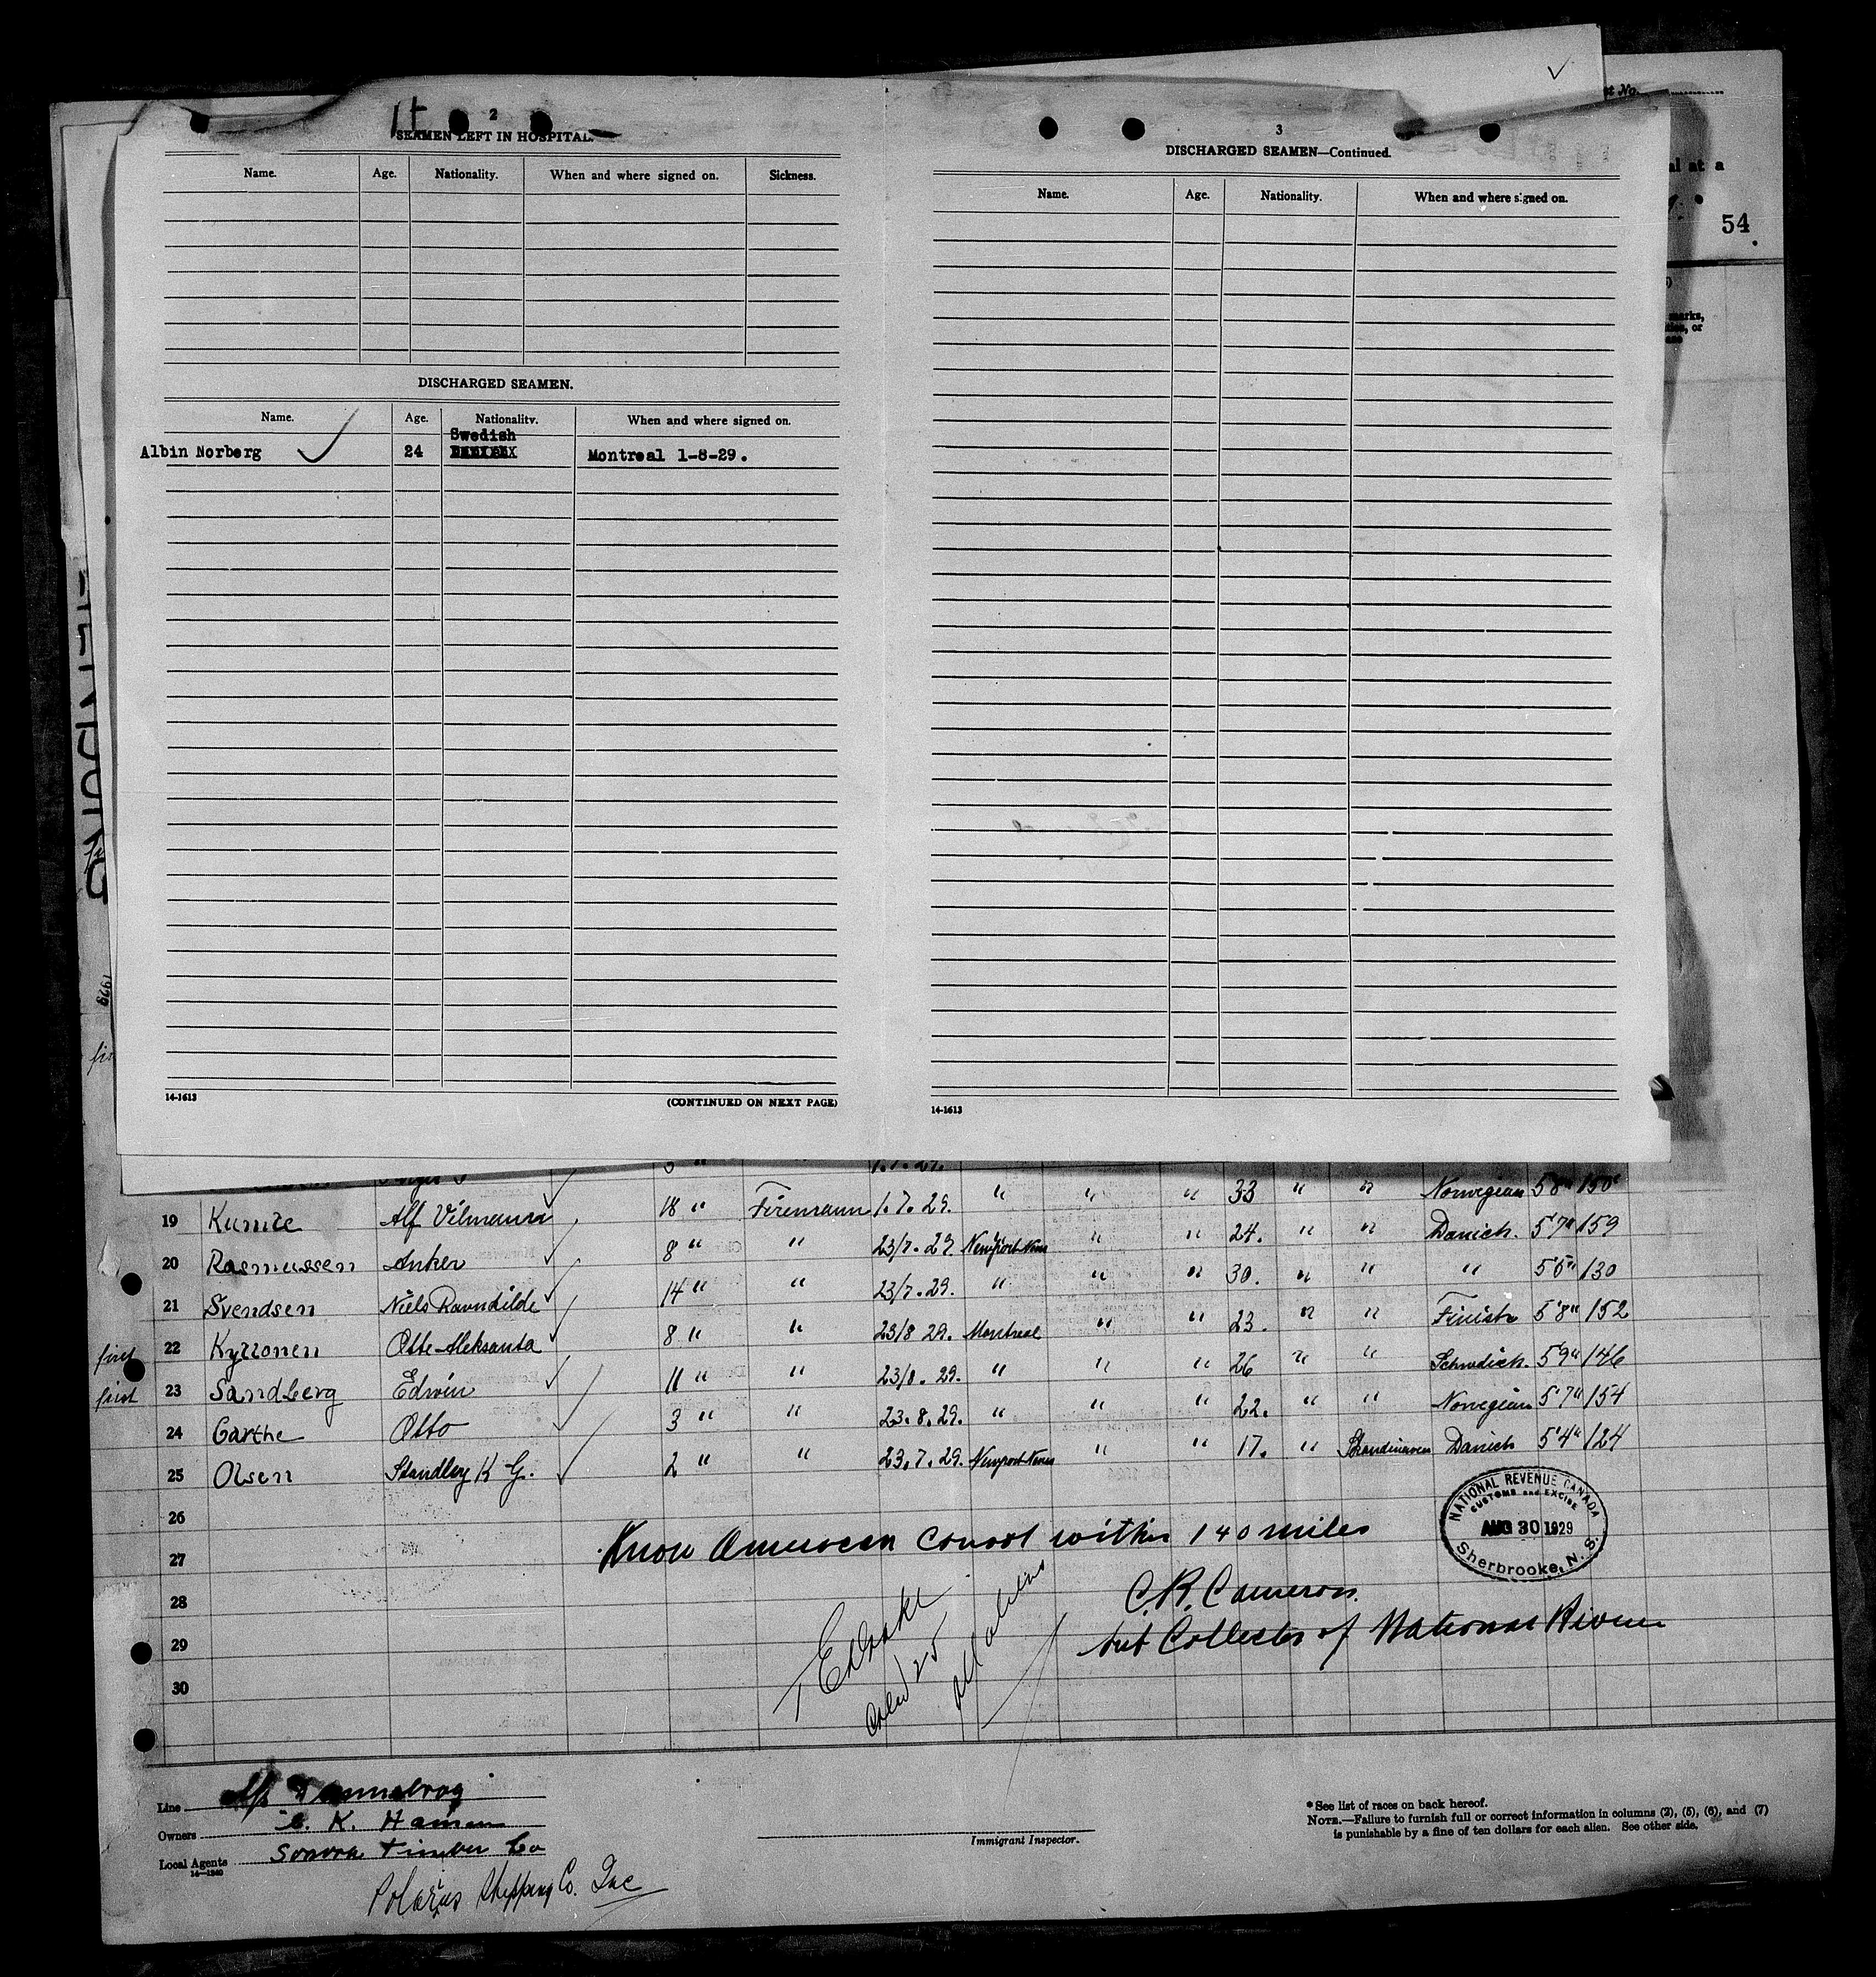 2
SEAMEN LEFT IN HOSPITAL.
Name. Age. Nationality. When and where signed on. Sickness.
DISCHARGED SEAMEN.
Name. Age. Nationality. When and where signed on.
Swedish
Albin Norberg 24 Montreal 1-8-29.
14-1613 (CONTINUED ON NEXT PAGE)
3
DISCHARGED SEAMEN—Continued.
Name. Age. Nationality. When and where signed on.
14-1613
al at a
54
marks,
1.7.29.
19 Kunze Alf Vilmann 18 " Firemann 1.7.29. " " " 33 " " Norwegian 5'8" 150
20 Rasmussen Anker 8 " " 23/7.29. Newport News " " 24. " " Danich. 5'7" 159
21 Svendsen Niels Ravnkilde 14 " " 23/7.29. " " " 30. " " " 5'6" 130
first 22 Kyllonen Otto Aleksanta 8 " " 23/8 29. Montreal " " 23. " " Finish 5'8" 152
first 23 Sandberg Edwin 11 " " 23/8.29. " " " 26 " " Schwdich. 5'9" 146
24 Garthe Otto 3 " " 23.8.29. " " " 22. " " Norwegian 5'7" 154
25 Olsen Standley K G. 2 " " 23.7.29. Newport News " " 17. " Skandinaven Danich 5'4" 124
26
27
28
29
30
Know American Consol within 140 miles
C.R. Cameron.
Sub Collector of National
NATIONAL REVENUE CANADA
CUSTOMS and EXCISE
AUG 30 1929
Sherbrooke, N. S.
Line M/s Dannebrog
Owners C. K. Hansen
Local Agents Sonora Timber Co
14—1240
Polarus Shipping Co. Inc
Immigrant Inspector.
* See list of races on back hereof.
NOTE.—Failure to furnish full or correct information in columns (2), (5), (6), and (7)
is punishable by a fine of ten dollars for each alien. See other side.